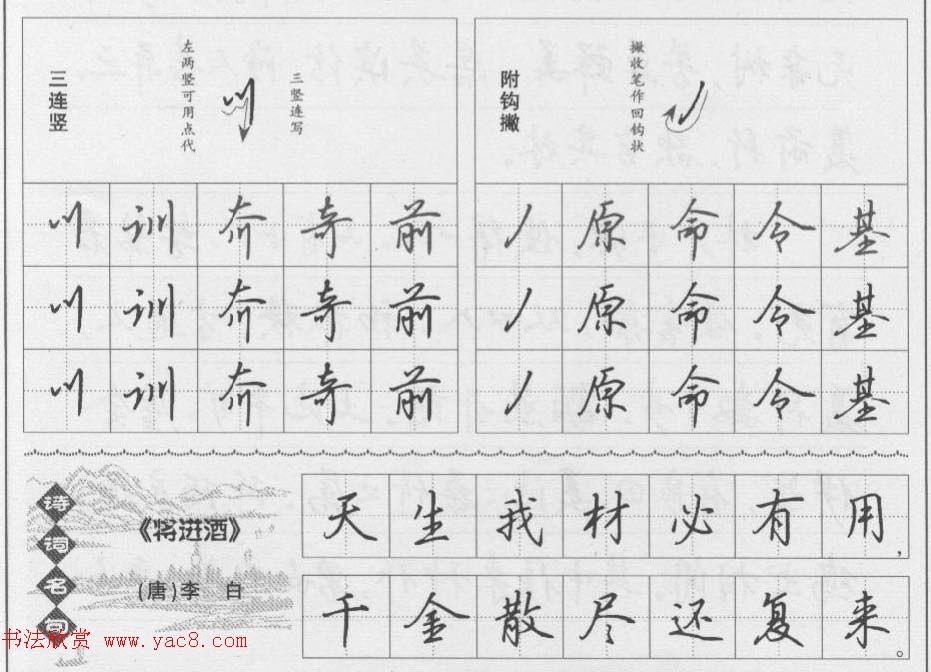 三连竖
左两竖可用点代
三竖连写
附钩撇
撇收笔作回钩状
训 奇 前
原 命 令 基
训 奇 前
原 命 令 基
训 奇 前
原 命 令 基
诗词名句
《将进酒》
(唐)李 白
天生我材必有用，
千金散尽还复来。
书法欣赏 www.yac8.com